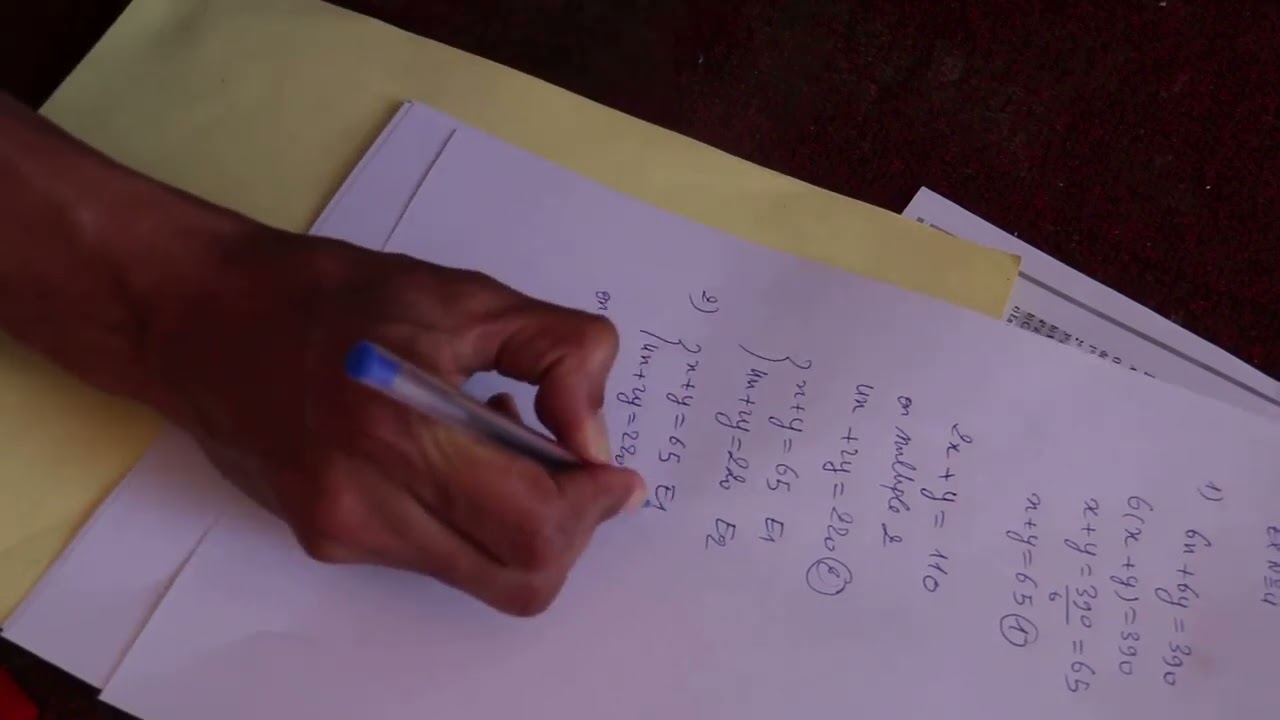 EX N=4
1) 6x + 6y = 390
6(x + y) = 390
x + y = 390/6 = 65
x + y = 65 ①
2x + y = 110
on multiple 2
4x + 2y = 220 ②
{ x + y = 65 E1
{ 4x + 2y = 220 E2
2)
{ x + y = 65 E1
{ 4x + 2y = 220
on